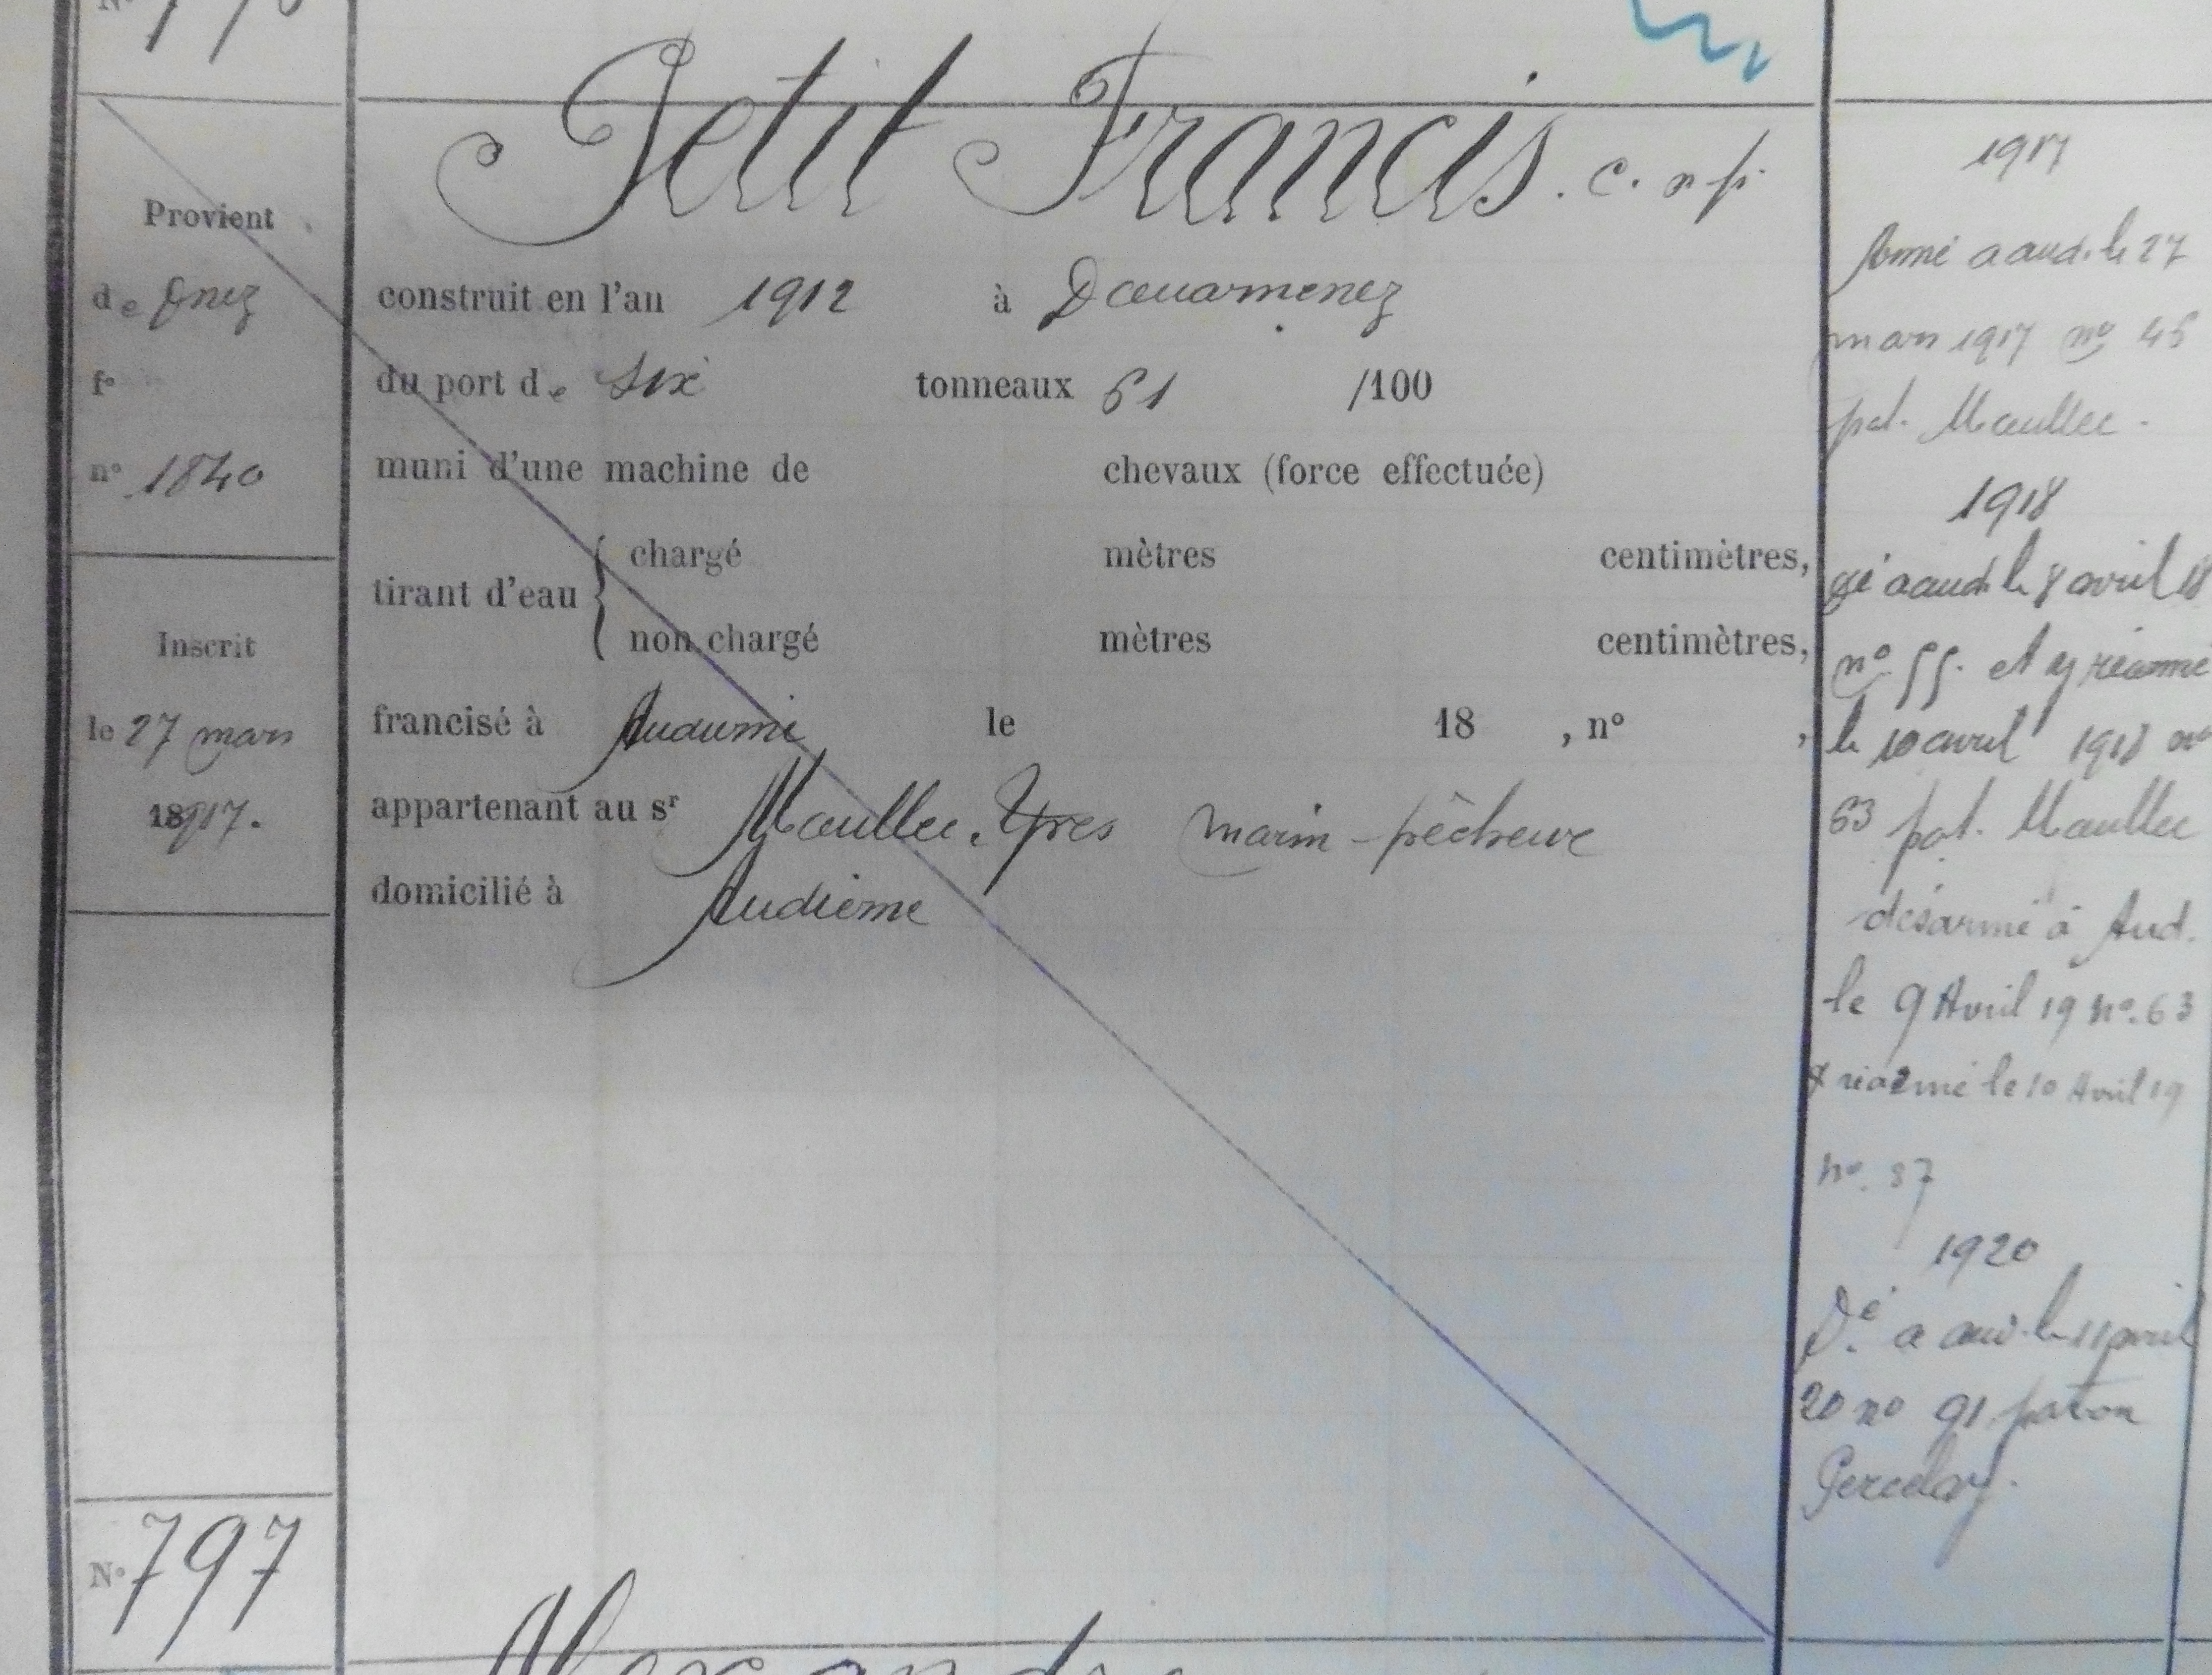 N°
Petit Francis. c. n p.
Provient
de Dnez
f°
n° 1840
Inscrit
le 27 mars
1917.
construit en l'an 1912 à Douarnenez
du port de six tonneaux 61 /100
muni d'une machine de chevaux (force effectuée)
tirant d'eau { chargé mètres centimètres,
non chargé mètres centimètres,
francisé à Audierne le 18 , n° ,
appartenant au sr Maullec. Yves marin-pêcheur
domicilié à Audierne
1917
Armé a aud. le 27
mars 1917 no 45
pat. Maullec.
1918
Dé a aud. le 8 avril 18
no 55. et y réarmé
le 10 avril 1918 no
63 pat. Maullec
désarmé à Aud.
le 9 Avril 19 no. 63
& réarmé le 10 Avril 19
no. 87
1920
Dé a aud. le 11 avril
20 no 91 patron
N° 797